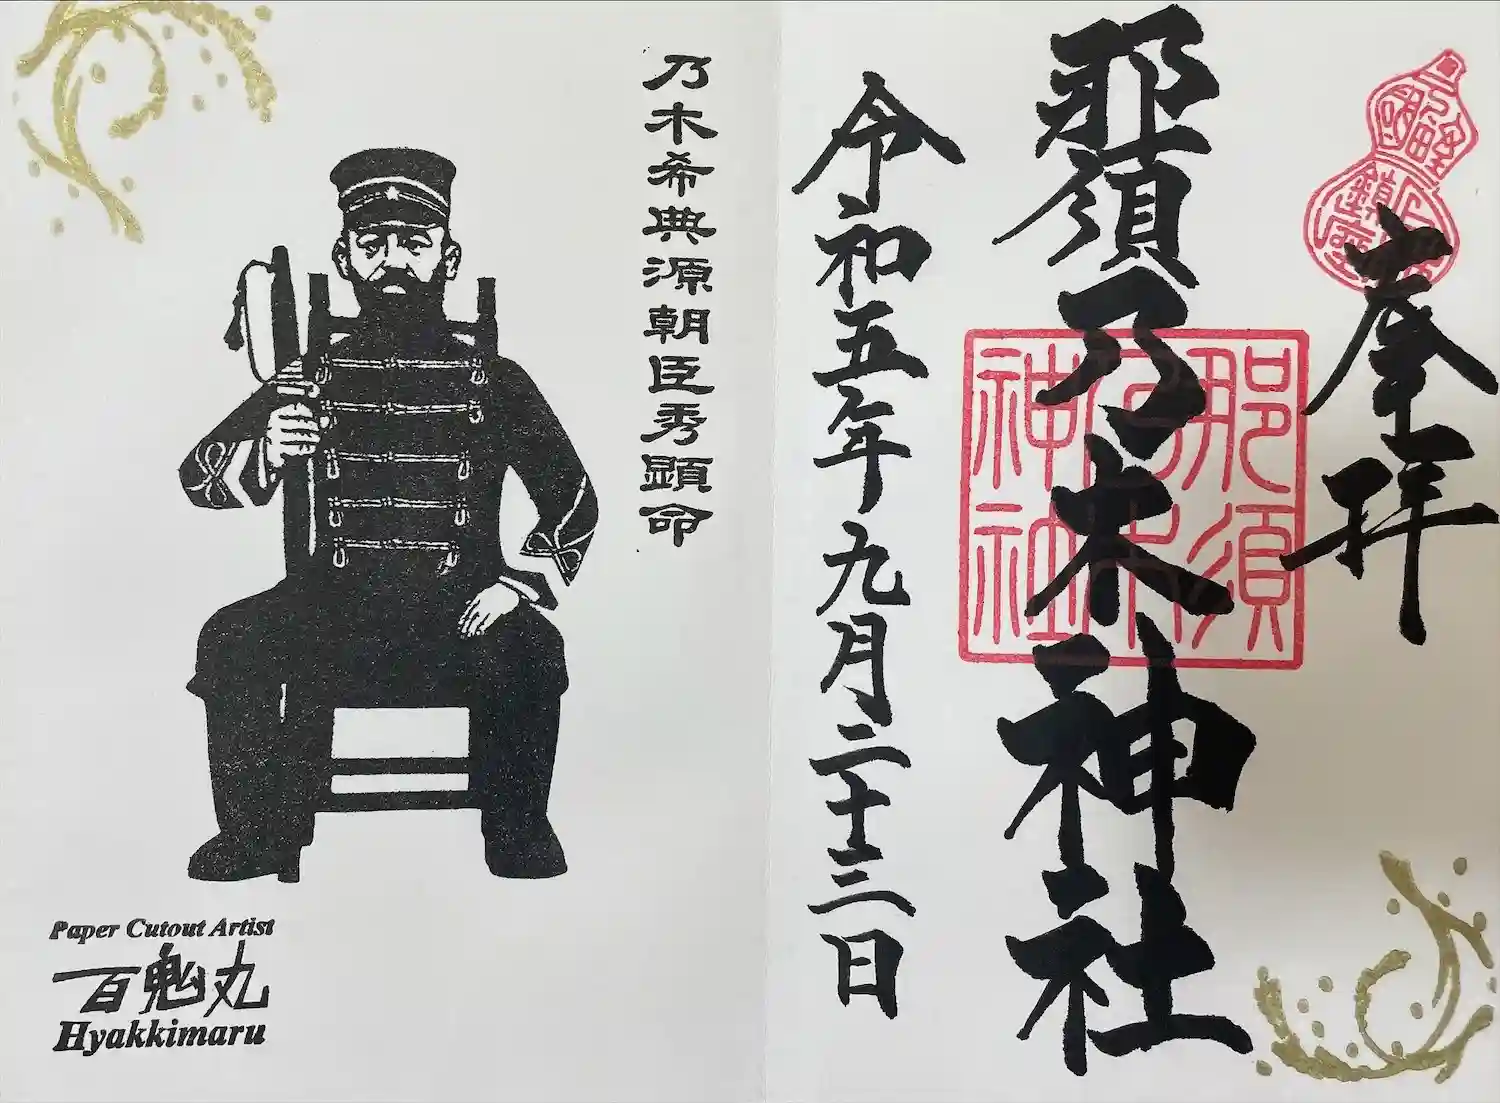 奉拝
那須乃木神社
那須乃木神社
令和五年九月二十三日
乃木希典源朝臣秀顕命
Paper Cutout Artist
百鬼丸
Hyakkimaru